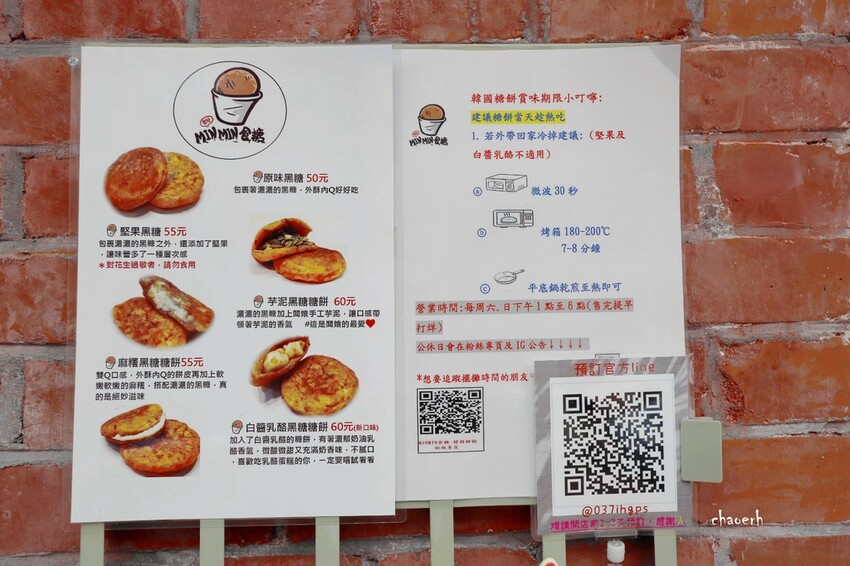 MINMIN食糖
原味黑糖 50元
包裹著濃濃的黑糖，外酥內Q好好吃
堅果黑糖 55元
包裹濃濃的黑糖之外，還添加了堅果
，讓味蕾多了一種層次感
＊對花生過敏者，請勿食用
芋泥黑糖糖餅 60元
濃濃的黑糖加上闆娘手工芋泥，讓口感帶
領著芋泥的香氣 #這是闆娘的最愛
麻糬黑糖糖餅55元
雙Q口感，外酥內Q的餅皮再加上軟
嫩軟嫩的麻糬，搭配濃濃的黑糖，真
的是絕妙滋味
白醬乳酪黑糖糖餅 60元(新口味)
加入了白醬乳酪的糖餅，有著濃郁奶油乳
酪香氣，微酸微甜又充滿奶香味，不膩口
，喜歡吃乳酪蛋糕的你，一定要嚐試看看
MINMIN食糖
韓國糖餅賞味期限小叮嚀:
建議糖餅當天趁熱吃
1. 若外帶回家冷掉建議:（堅果及
白醬乳酪不適用）
a 微波 30 秒
b 烤箱 180-200℃
7-8 分鐘
c 平底鍋乾煎至熱即可
營業時間:每周六.日下午1點至6點(售完提早
打烊)
公休日會在粉絲專頁及 IG 公告↓↓↓↓
*想要追蹤擺攤時間的朋友
預訂官方line
@037ihgps
chaoerh